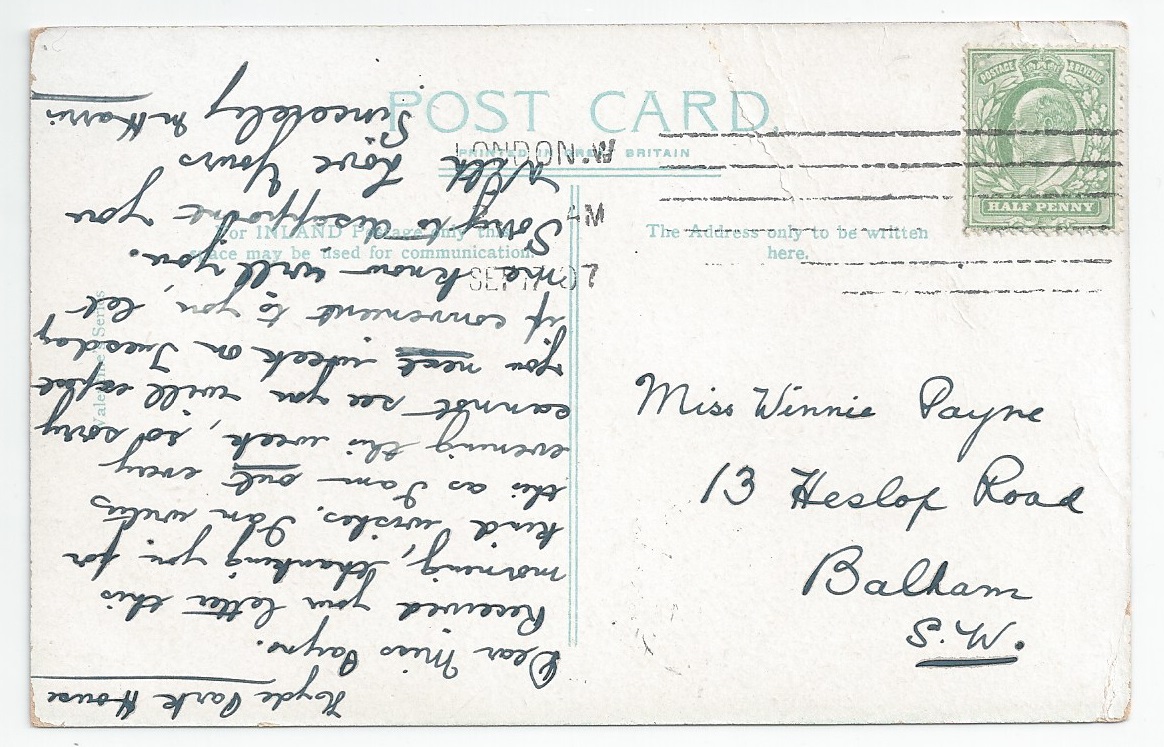 POST CARD.
PRINTED IN GREAT BRITAIN
For INLAND Postage only this
space may be used for communication.
The Address only to be written
here.
Valentine's Series
POSTAGE & REVENUE
HALF PENNY
LONDON.W
AM
SEP 07
Miss Winnie Payne
13 Heslop Road
Balham
S.W.
Hyde Park House
Dear Miss Payne.
Received your letter this
morning, thanking you for
kind wishes. I am writing
this as I am out every
evening this week, so sorry
cannot see you will expect
you next week on Tuesday
if convenient to you, let
me know will you.
Sorry to disappoint you
With Love Yours
Sincerely M Harris